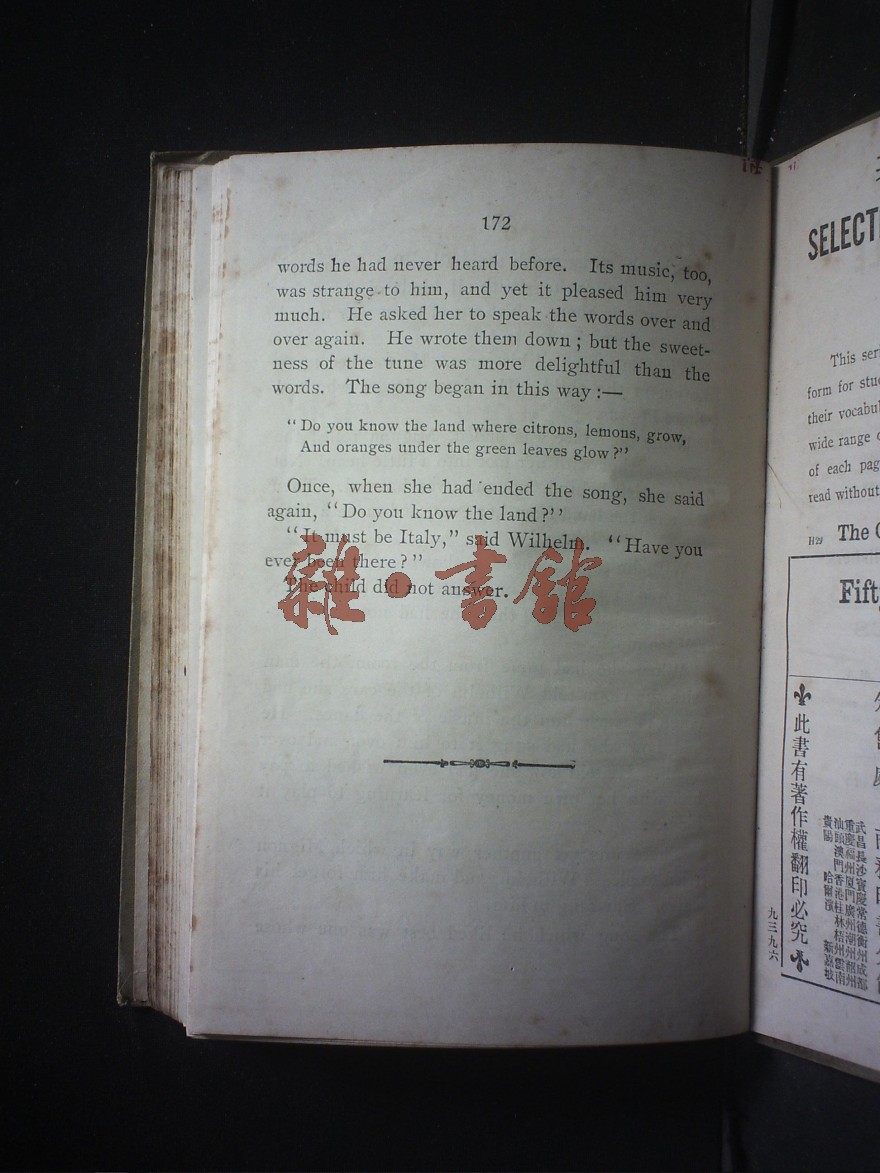 172
words he had never heard before. Its music, too,
was strange to him, and yet it pleased him very
much. He asked her to speak the words over and
over again. He wrote them down; but the sweet-
ness of the tune was more delightful than the
words. The song began in this way:—
"Do you know the land where citrons, lemons, grow,
And oranges under the green leaves glow?"
Once, when she had ended the song, she said
again, "Do you know the land?"
"It must be Italy," said Wilhelm. "Have you
ever been there?"
The child did not answer.
雜·書館
SELECT
This seri
form for stu
their vocabul
wide range o
of each pag
read without
H29 The C
Fift
此書有著作權翻印必究
九三九六